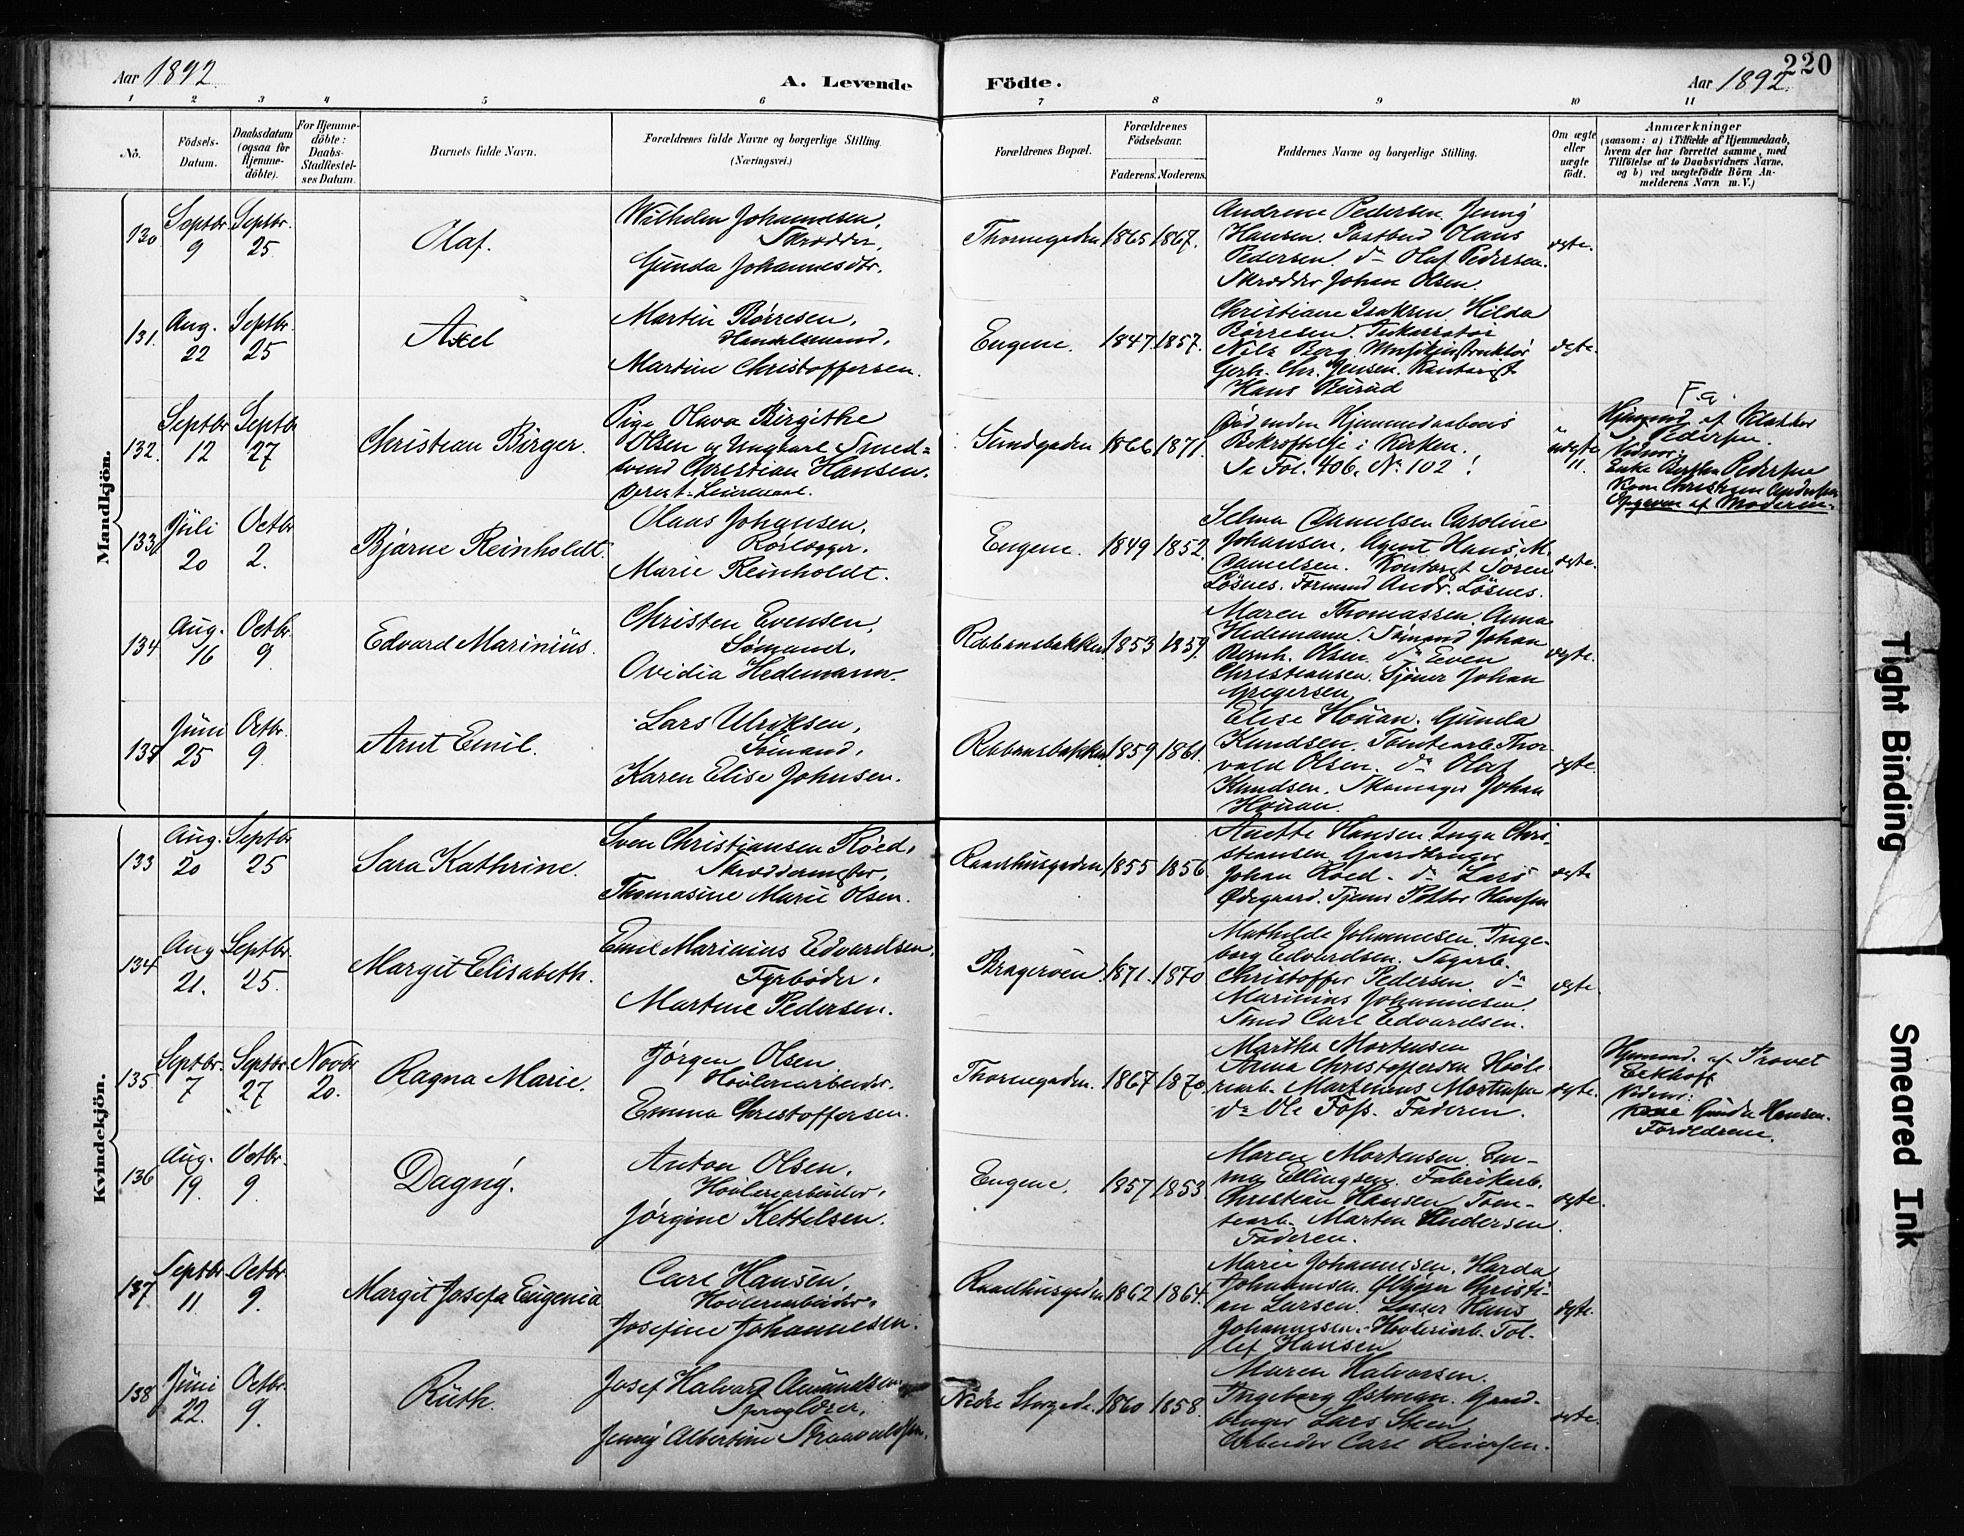 Aar 1892.
A. Levende Födte.
Aar 1892.
220
1 2 3 4 5 6 7 8 9 10 11
No.
Födsels-
Datum.
Daabsdatum
(ogsaa for
Hjemme-
döbte).
For Hjemme-
döbte:
Daabs-
Stadfæstel-
ses Datum.
Barnets fulde Navn.
Forældrenes fulde Navne og borgerlige Stilling
(Næringsvei.)
Forældrenes Bopæl.
Forældrenes
Födselsaar.
Faderens. Moderens.
Faddernes Navne og borgerlige Stilling.
Om ægte
eller
uægte
födt.
Anmærkninger
(saasom: a) i Tilfælde af Hjemmedaab,
hvem der har forrettet samme, med
Tilföielse af to Daabsvidners Navne,
og b) ved uægtefödte Börn An-
melderens Navn m. V.)
Mandkjön.
130
Septbr.
9
Septbr.
25
Olaf.
Wilhelm Johannesen,
Skrædder,
Gunda Johannesdtr.
Thornegaden
1865
1867.
Andrene Pedersen. Jenny
Hansen. Postbud Olaus
Pedersen. do Olaf Pedersen.
Skrædder Johan Olsen.
ægte.
131.
Aug.
22
Septbr.
25
Axel
Martin Börresen,
Handelsmand,
Martine Christoffersen.
Eugene.
1847.
1857.
Christiane Hilda
Börresen.
Nils Berg. Musikinstruktör
Gerh. Chr. Jensen. Kontorist
Hans Burud
ægte.
132.
Septbr
12
Septbr
27
Christian Birger.
Pige Olava Birgithe
Olsen og Ungkarl Smed-
svend Christian Hansen.
Sundgaden
1866
1871.
Död inden Hjemmedaabens
Bekræftelse i Kirken.
Se Fol. 406. No 102!
uægte
F.a.
Hjemmed. af Klokker
Pedersen.
Vidner:
Enke Berthe Pedersen
Kone Christiane Andersen
Opgiven af Moderen.
133
Juli
20
Octbr
2.
Bjarne Reinholdt.
Olaus Johansen,
Rörlægger,
Marie Reinholdt.
Eugene.
1849
1852.
Selma Danielsen Caroline
Johansen. Agent Hans M.
Danielsen. Kontorist Sören
Lösnes. Formand Andr. Lösnes.
ægte.
134
Aug.
16
Octbr.
9
Edvard Marinius.
Christen Evensen,
Sömand,
Ovidia Hedemann.
1853
1859.
Maren Thomassen. Anna
Hedemann. Sömand Johan
Bernh. Olsen. do Even
Christiansen. Johan
Gregersen
ægte.
135
Juni
25
Octbr.
9.
Arnt Emil.
Lars Ulriksen,
Sömand,
Karen Elise Johnsen.
1859
1861.
Elise Houan. Gunda
Knudsen. Tomtearb. Thor-
vald Olsen. do Olaf
Knudsen. Skomager Johan
Houan.
ægte.
Kvindekjön.
133
Aug.
20
Septbr
25
Sara Kathrine.
Sven Christiansen Röed,
Skræddermester,
Thomasine Marie Olsen.
Raadhusgaden
1855
1856.
Anette Hansen Inga Chri-
stiansen. Gaardbruger
Johan Röed. do Lars
Ödegaard. Tjener Petter Hansen
ægte
134
Aug
21.
Septbr.
25.
Margit Elisabeth.
Emil Marinius Edvardsen,
Fyrböder,
Martine Pedersen.
Bragerøen
1871.
1870
Mathilde Johannesen. Inge-
borg Edvardsen. Sagarb.
Christoffer Pedersen. do
Marinius Johannesen
Smed Carl Edvardsen.
ægte.
135
Septbr.
7
Septbr.
27
Novbr
20.
Ragna Marie.
Jörgen Olsen
Hövleriarbeider,
Emma Christoffersen.
Thornegaden.
1867
1870.
Martha Mortensen
Anna Christoffersen Hövle-
riarb. Martinius Mortensen
do Ole Foss. Faderen.
ægte.
Hjemmed. af Provst
Eckhoff
Vidner:
Kone Gunda Hansen.
Forældrene.
136
Aug.
19.
Octbr.
9.
Dagny.
Anton Olsen,
Hövleriarbeider,
Jörgine Kettelsen.
Eugene.
1857
1853.
Maren Mortensen. Em-
ma Ellingsen. Fabrikarb.
Christian Hansen Tom-
tearb. Morten Andersen
Faderen.
ægte.
137
Septbr.
11.
Octbr
9.
Margit Josefa Eugenia
Carl Hansen,
Hövleriarbeider,
Josefine Johannesen.
Raadhusgaden
1862
1864.
Marie Johannesen. Harda
Johannesen. Christi-
an Larsen. Losser Hans
Johannesen. Hövleriarb. Tol-
lef Hansen
ægte.
138
Juni
22.
Octbr.
9.
Ruth.
Josef Halvard Amundsen
Jenny Albertine
Nedre Storgade.
1860
1858.
Maren Halvorsen.
Ingeborg Östman. Gaard-
bruger Lars Steen
Arbeider Carl Reiersen.
ægte.
Tight Binding
Smeared Ink